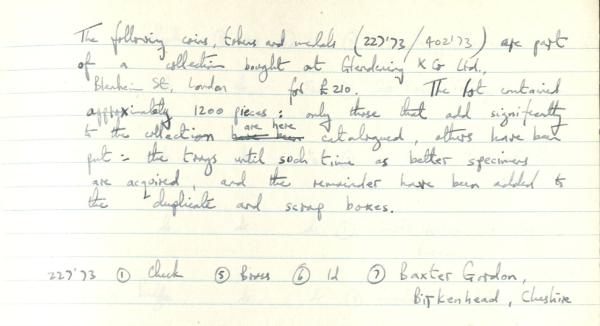 The following coins, tokens and medals (227'73/402'73) are part
of a collection bought at Glendening & Co Ltd.,
Blenheim St, London for £210. The lot contained
approximately 1200 pieces: only those that add significantly
to the collection are here catalogued, others have been
put in the trays until such time as better specimens
are acquired, and the remainder have been added to
the duplicate and scrap boxes.
227'73 ① Check ⑤ Brass ⑥ 1d ⑦ Baxter Gordon,
Birkenhead, Cheshire